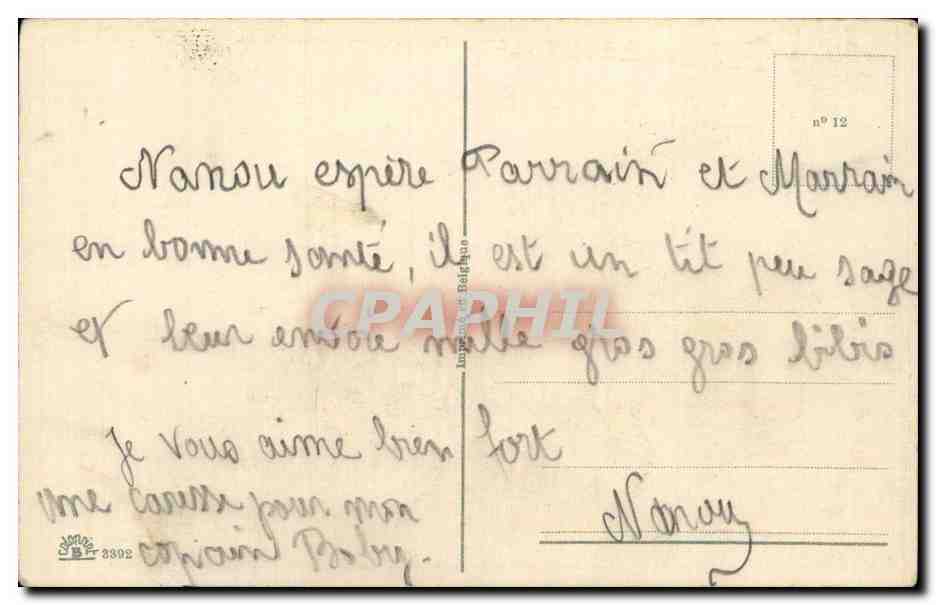 nº 12
Nanou espère Parrain et Marrain
en bonne santé, il est un tit peu sage
et leur envoie mille gros gros bibis
Je vous aime bien fort
Nanou
une caresse pour mon
copain Boby.
Imprimé en Belgique
CPAPHIL
3392